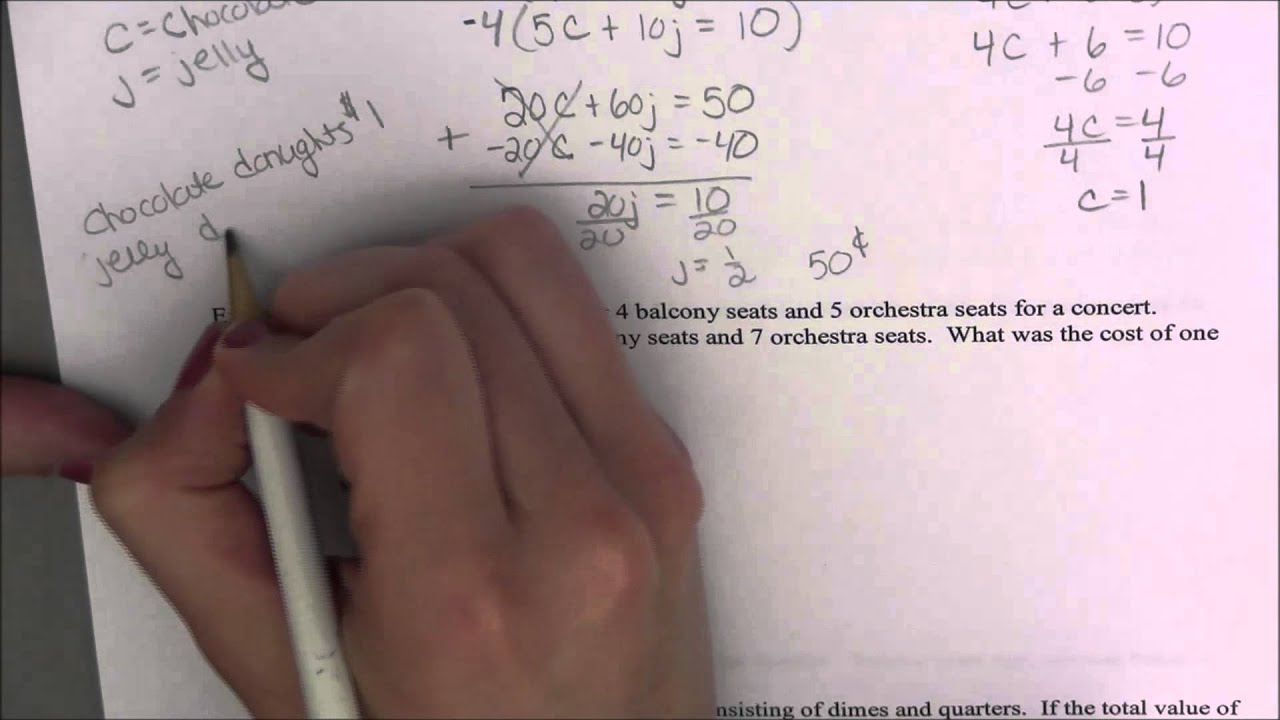 c = chocolate
j = jelly
-4(5c + 10j = 10)
20c + 60j = 50
+ -20c - 40j = -40
20j = 10
20 20
j = 1/2 50¢
4c + 6 = 10
-6 -6
4c = 4
4 4
c = 1
chocolate donughts $1
jelly d
4 balcony seats and 5 orchestra seats for a concert.
ny seats and 7 orchestra seats. What was the cost of one
nsisting of dimes and quarters. If the total value of